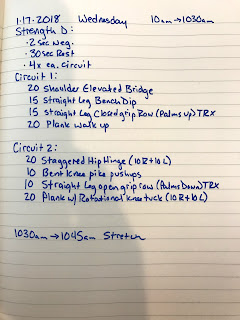 1.17.2018 Wednesday 10am→1030am
Strength D:
· 2 sec Neg.
· 30 sec Rest
· 4x ea. circuit
Circuit 1:
20 Shoulder Elevated Bridge
15 Straight Leg Bench Dip
15 straight Leg Closed grip Row (Palms up) TRX
20 Plank walk up
Circuit 2:
20 Staggered Hip Hinge (10R+10L)
10 Bent Knee pike pushups
10 Straight Leg open grip row (Palms Down) TRX
20 Plank w/ Rotational Knee tuck (10R+10L)
1030am → 1045am Stretch